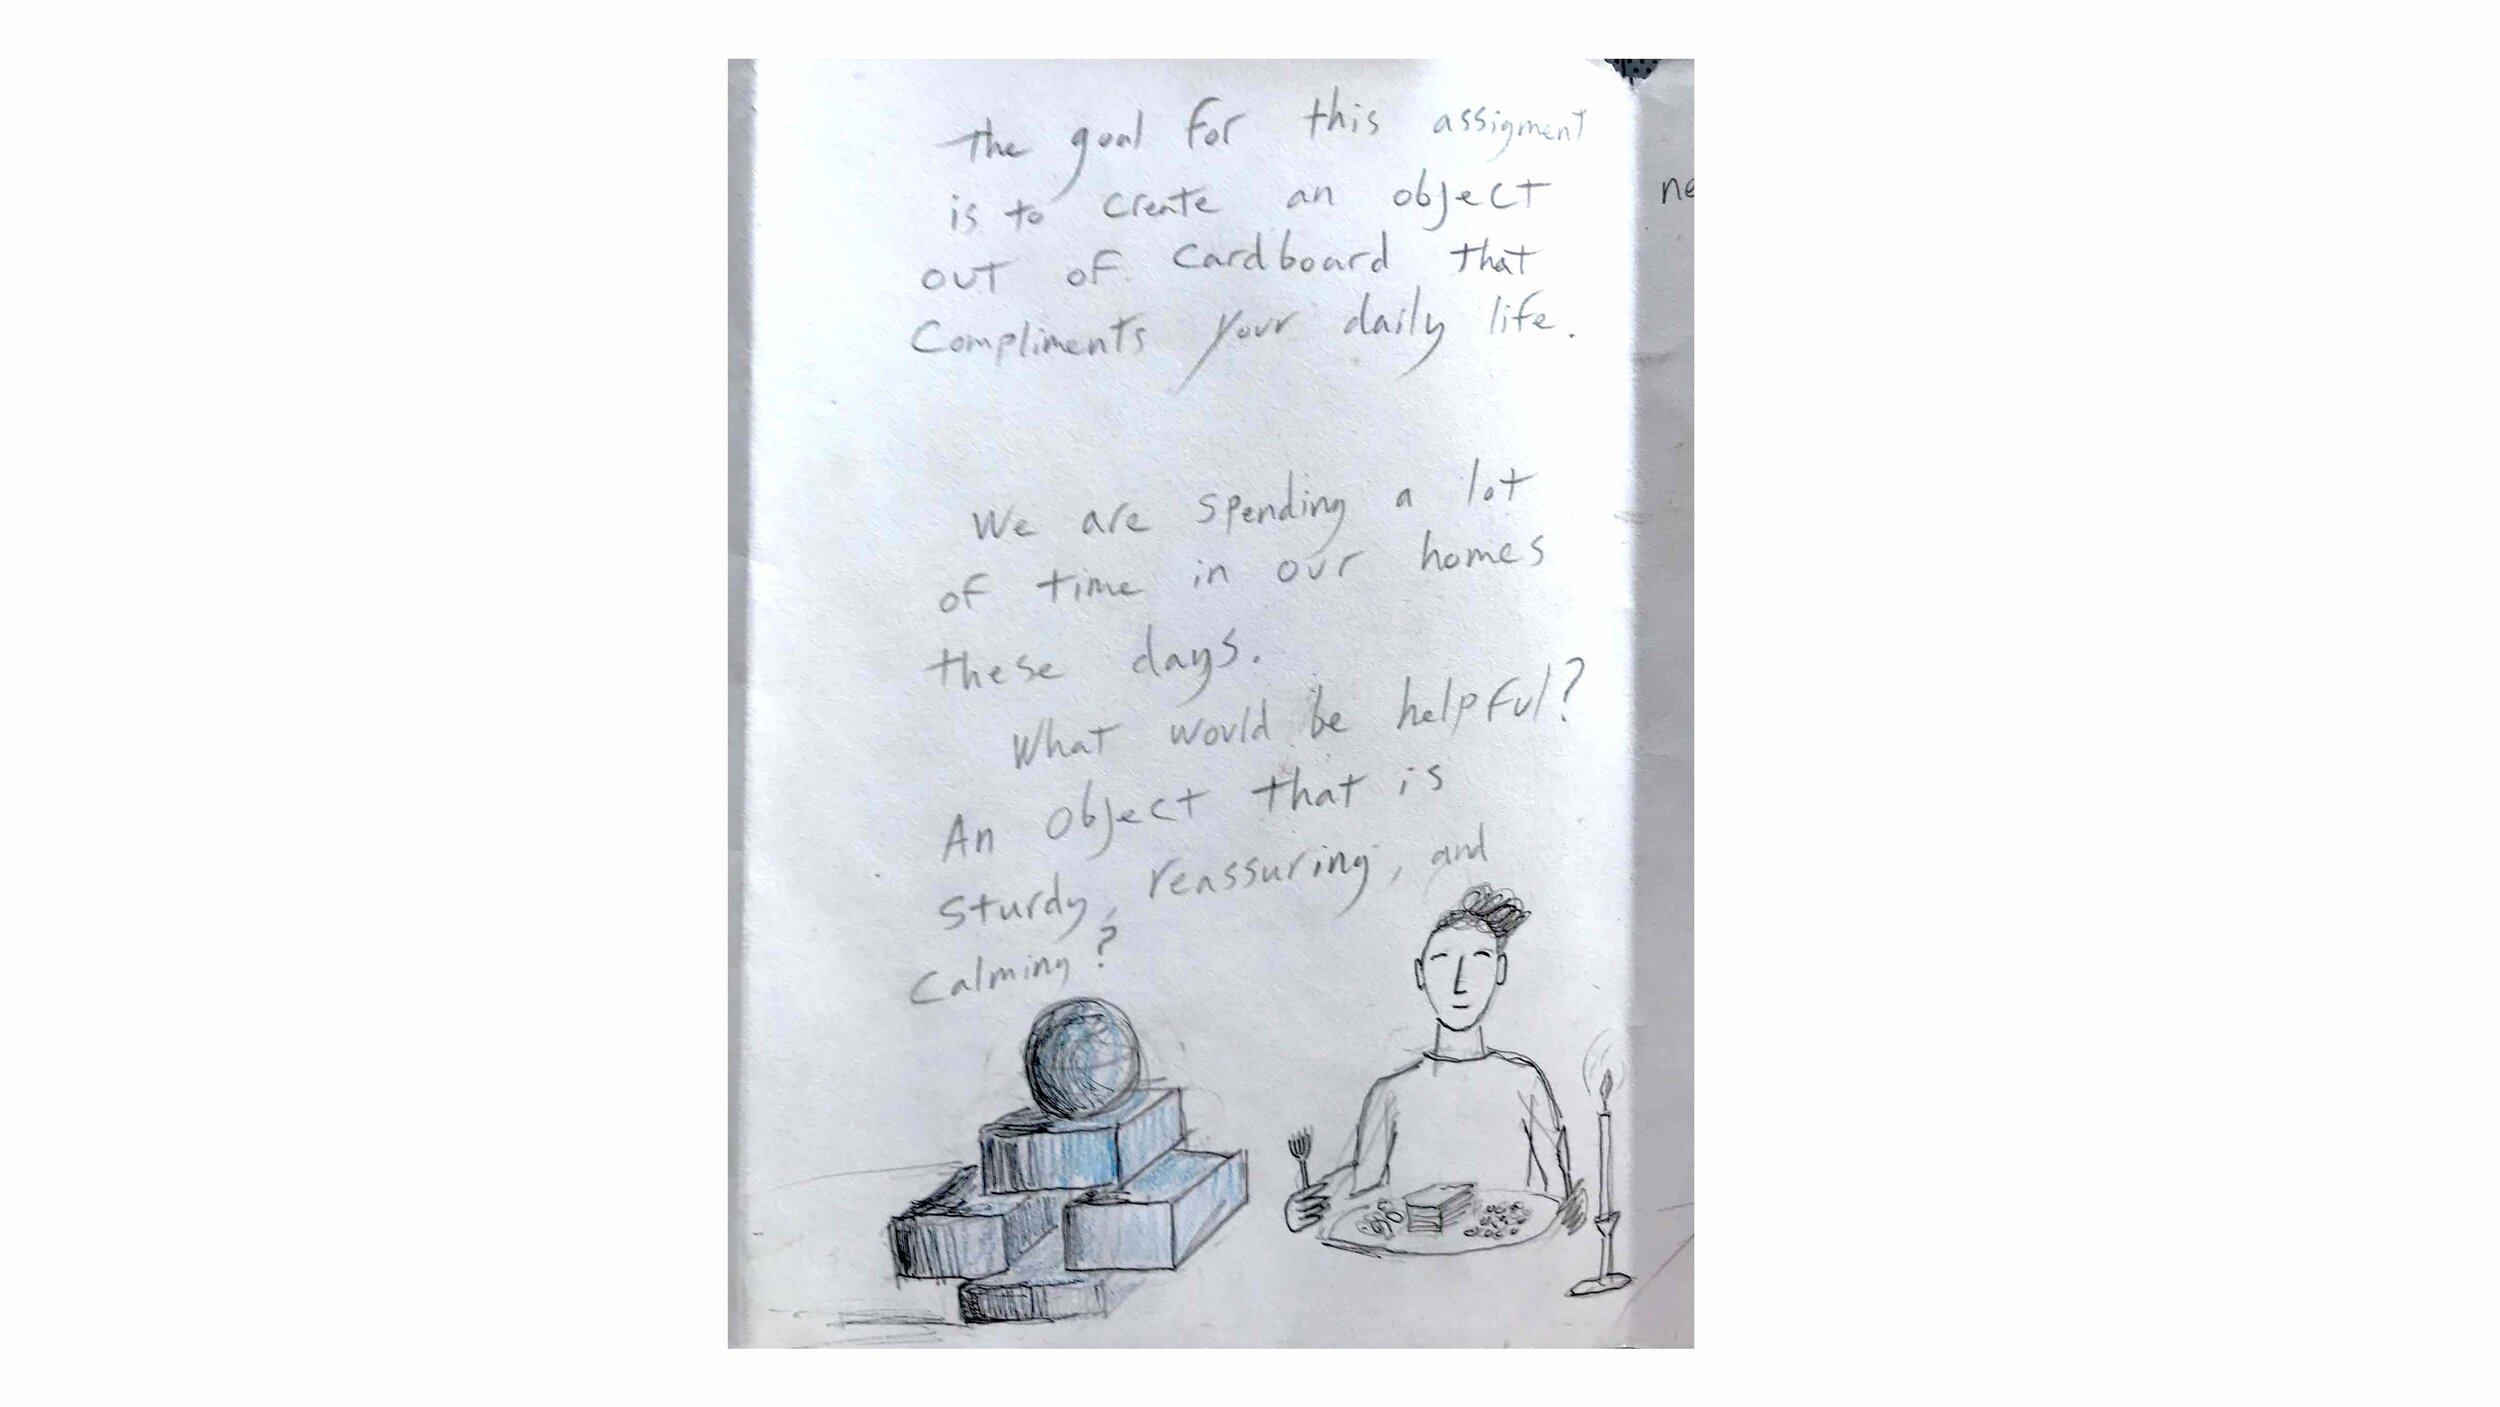 the goal for this assigment
is to create an object
out of cardboard that
Compliments your daily life.
We are spending a lot
of time in our homes
these days.
What would be helpful?
An object that is
sturdy, reassuring, and
Calming?
ne